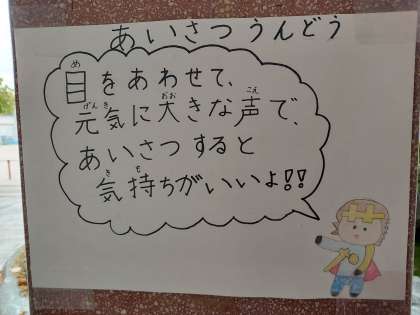 あいさつうんどう
目をあわせて、
元気に大きな声で、
あいさつすると
気持ちがいいよ!!